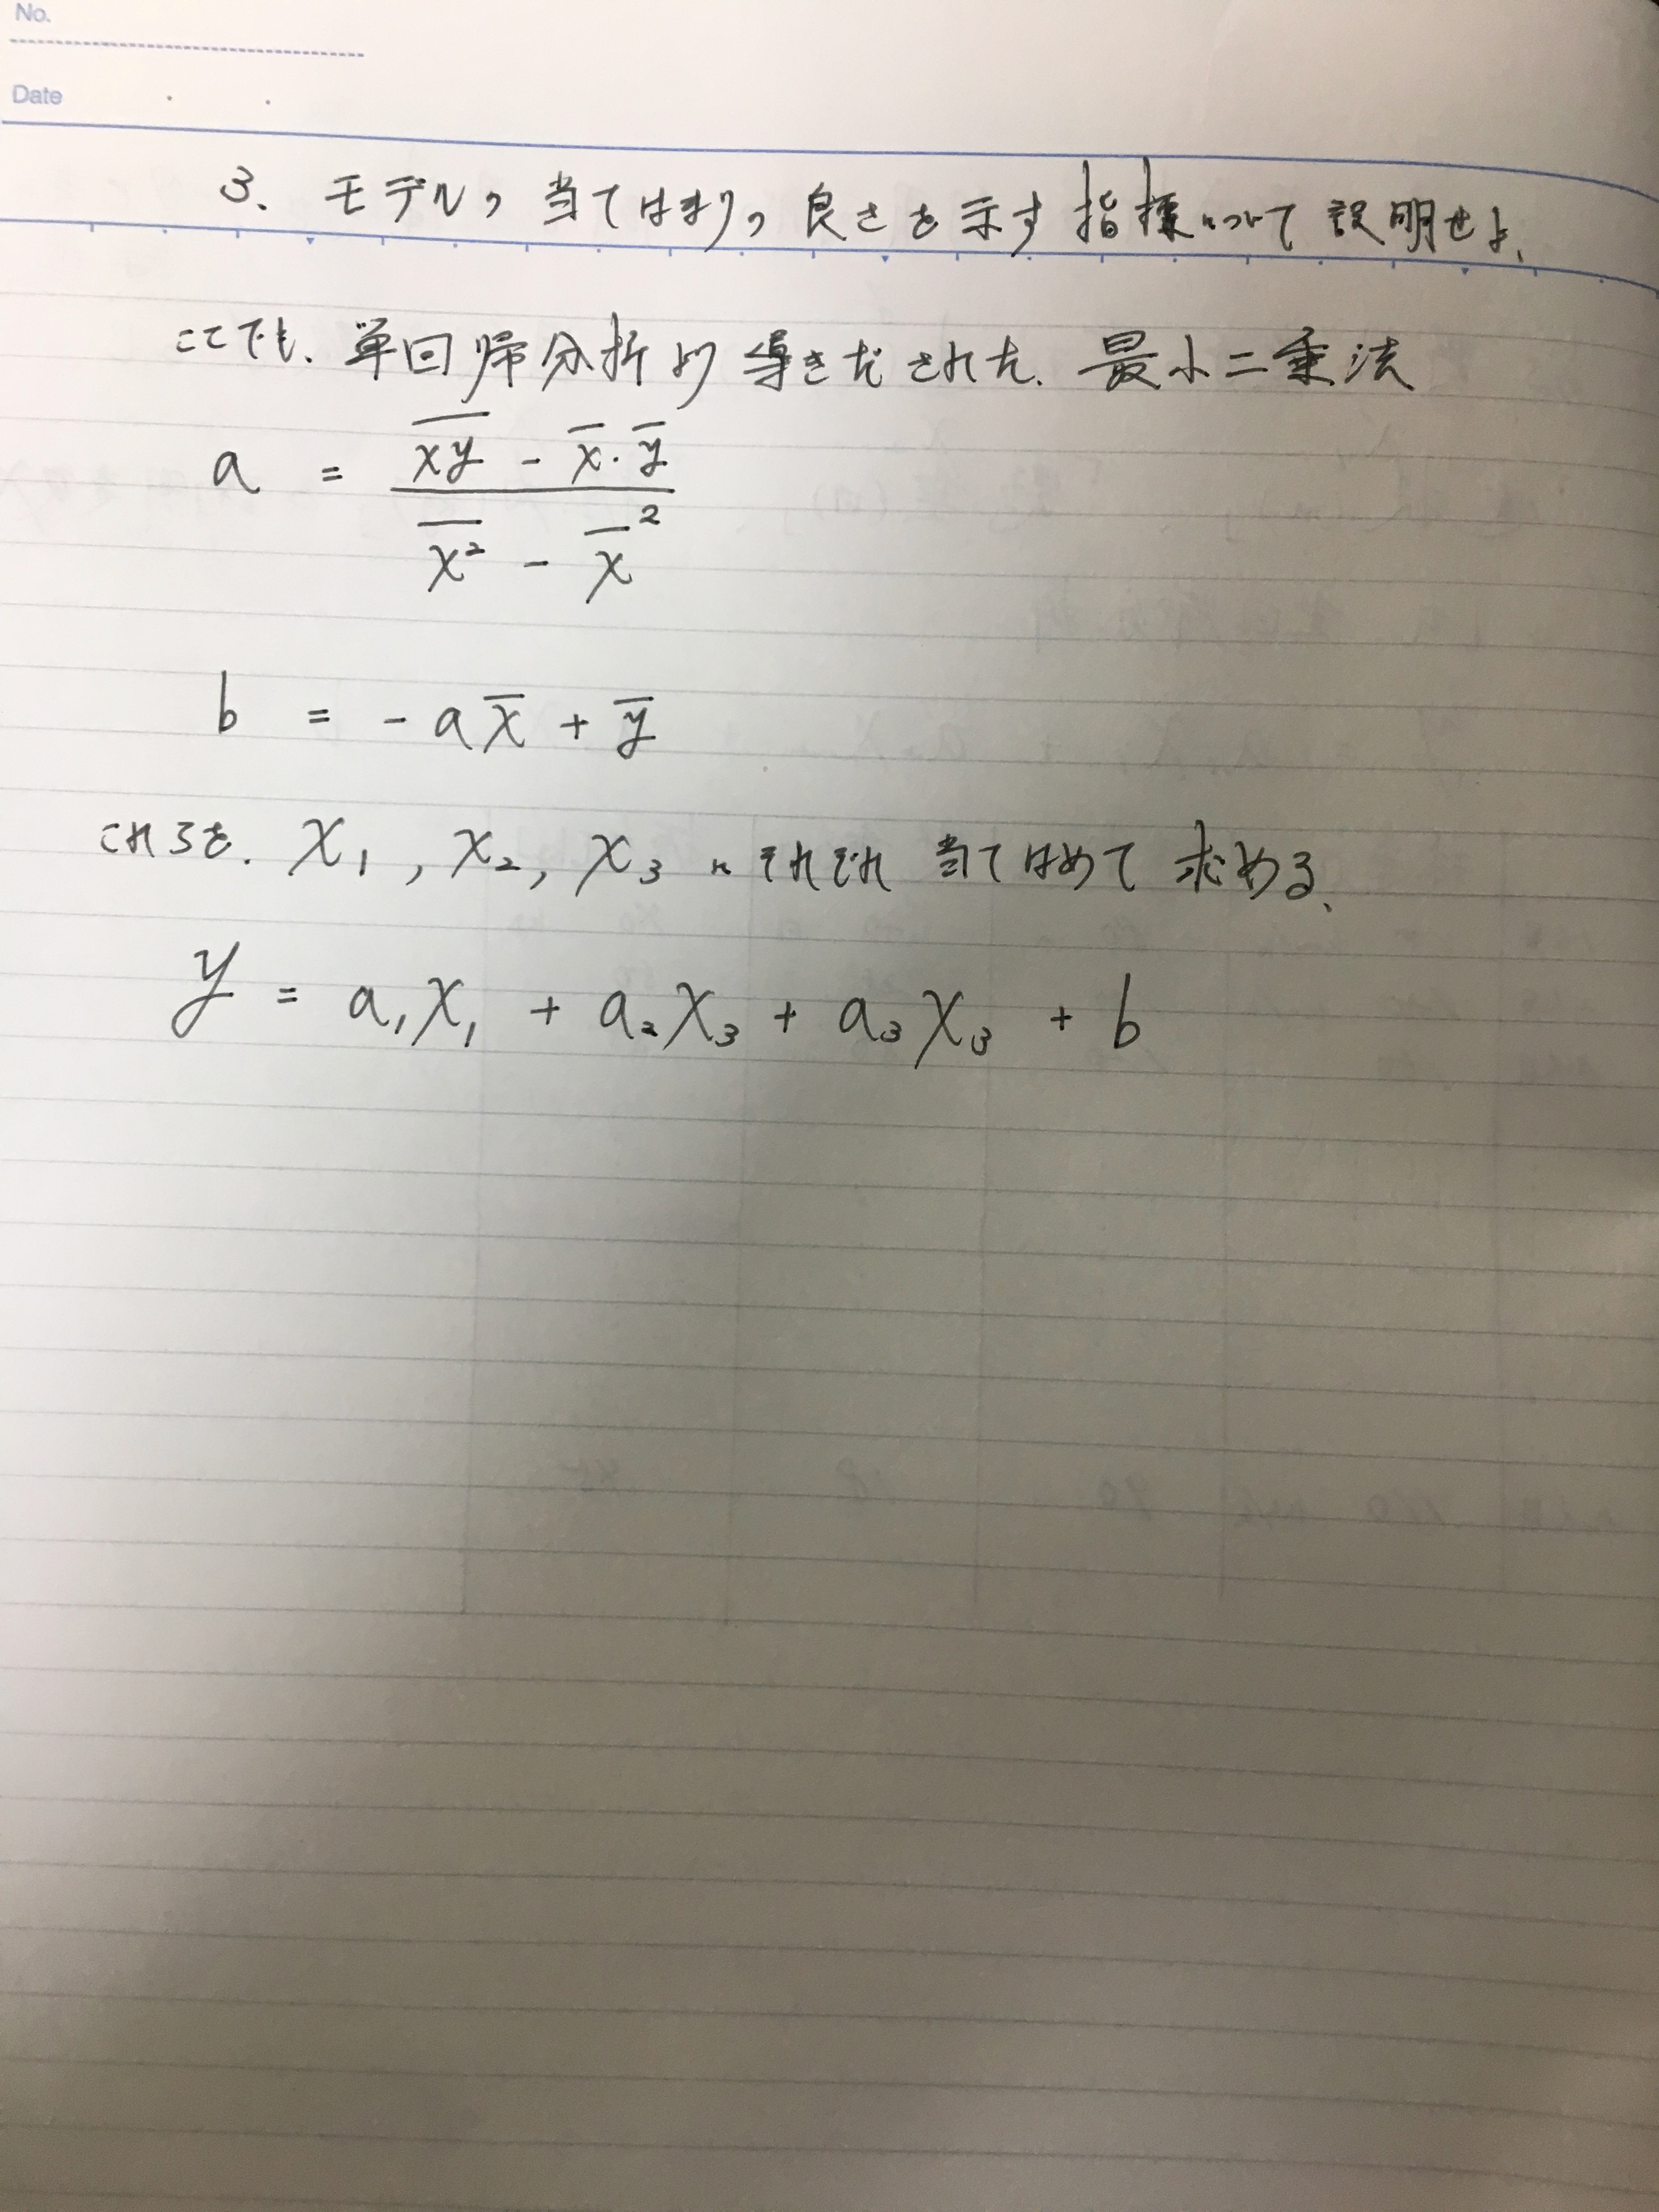 No.
Date
3. モデルの当てはまりの良さを示す指標について説明せよ、
ここでも、単回帰分析より導きだされた、最小二乗法
a = (\overline{xy} - \overline{x}・\overline{y}) / (\overline{x^2} - \overline{x}^2)
b = -a\overline{x} + \overline{y}
これらを、X₁, X₂, X₃ にそれぞれ当てはめて求める、
y = a₁X₁ + a₂X₃ + a₃X₃ + b